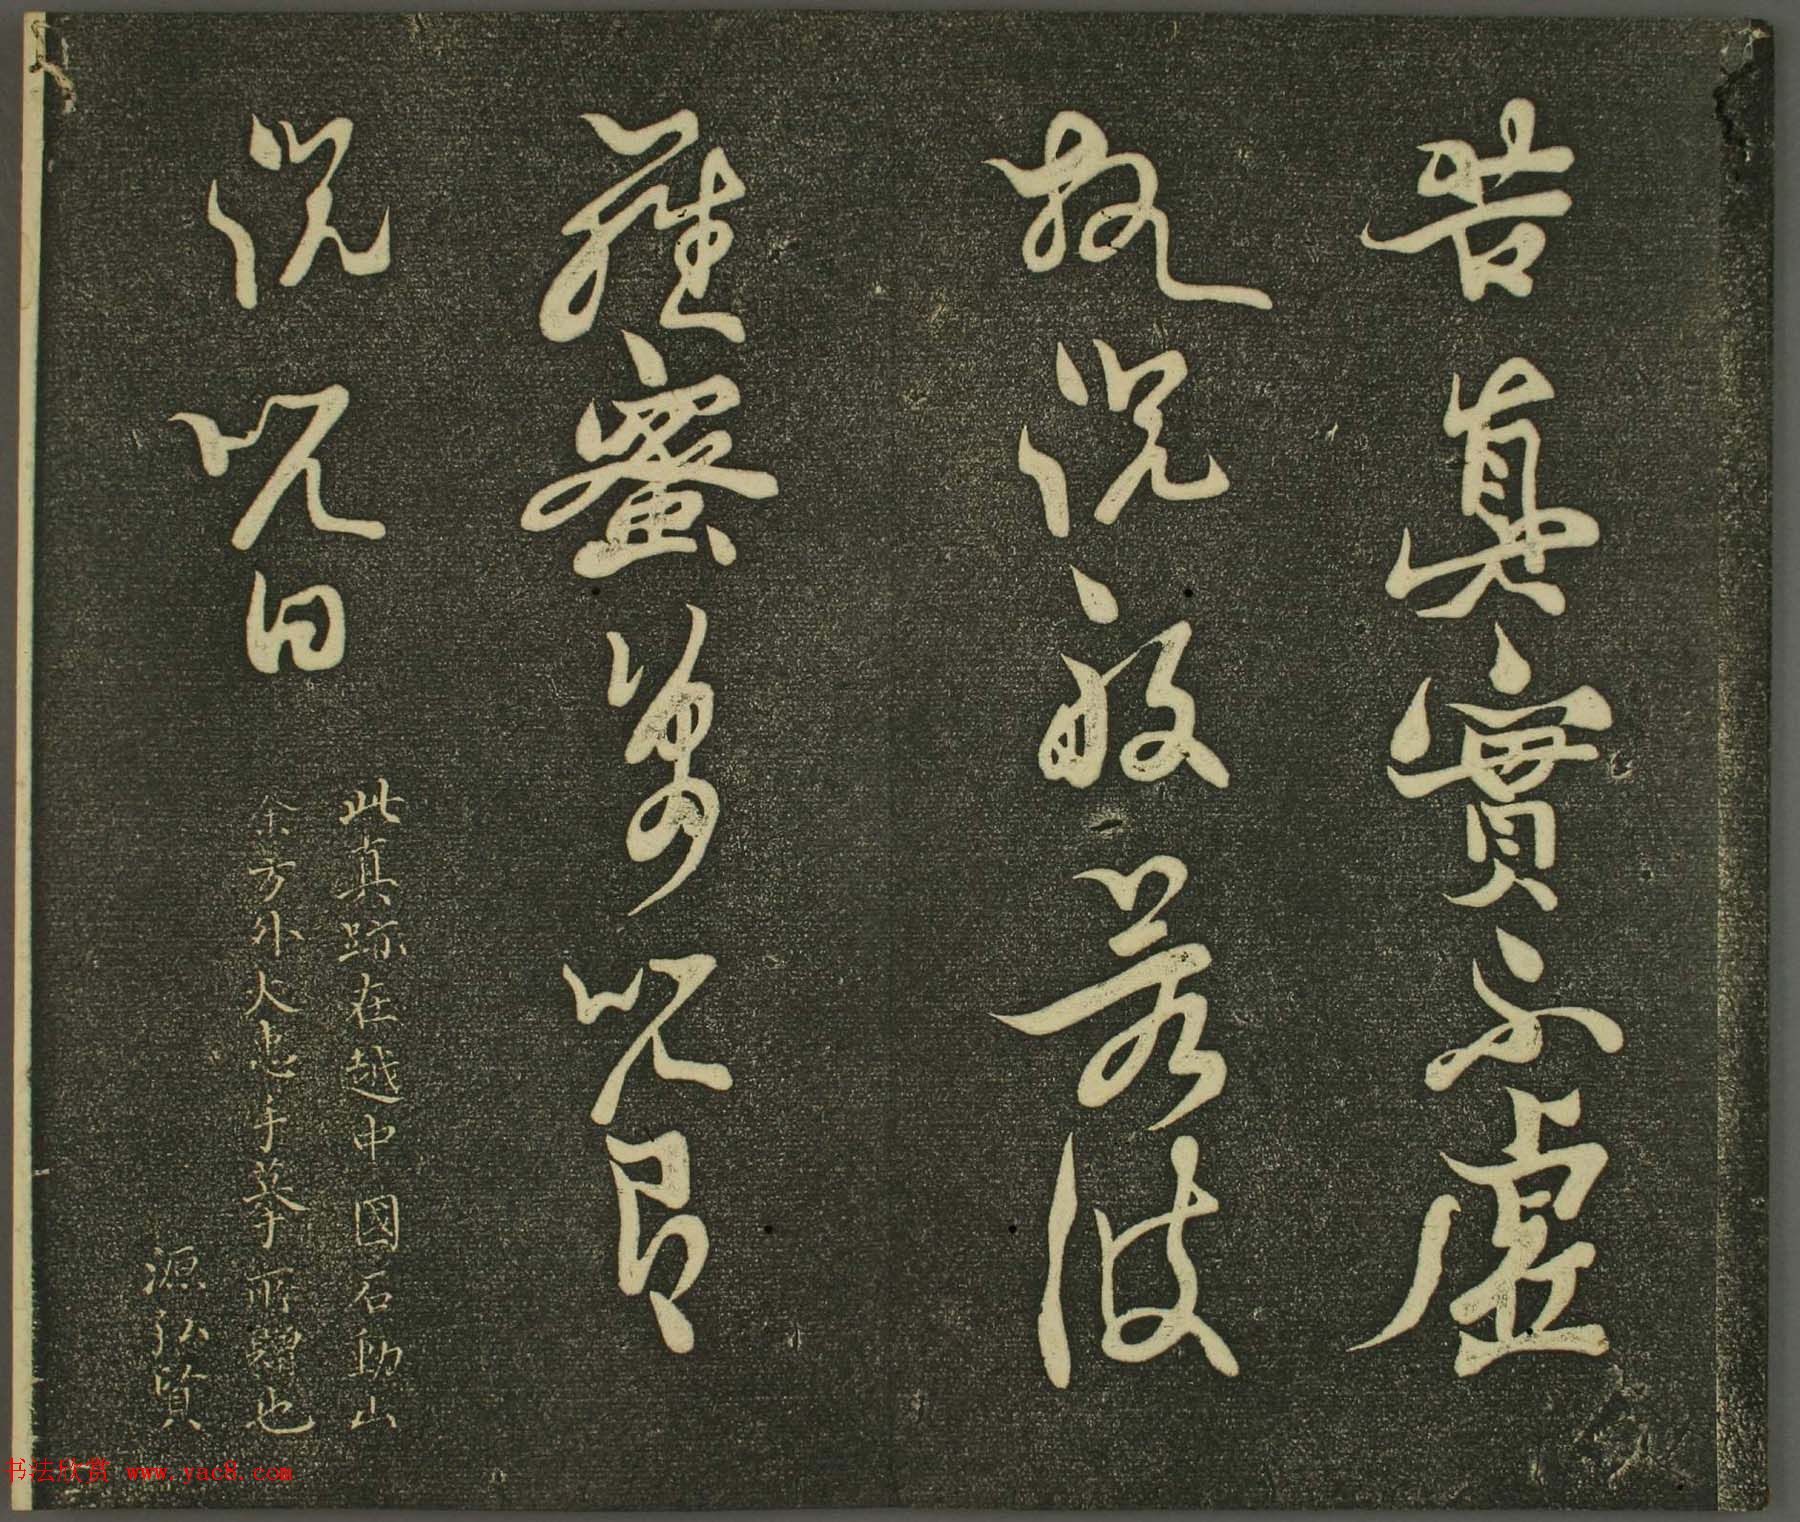 苦真實不虛
故說般若波
羅蜜多呪即
說呪曰
此真跡在越中國石動山
余方外人忠手摹所贈也
源弘賢
书法欣赏 www.yac8.com